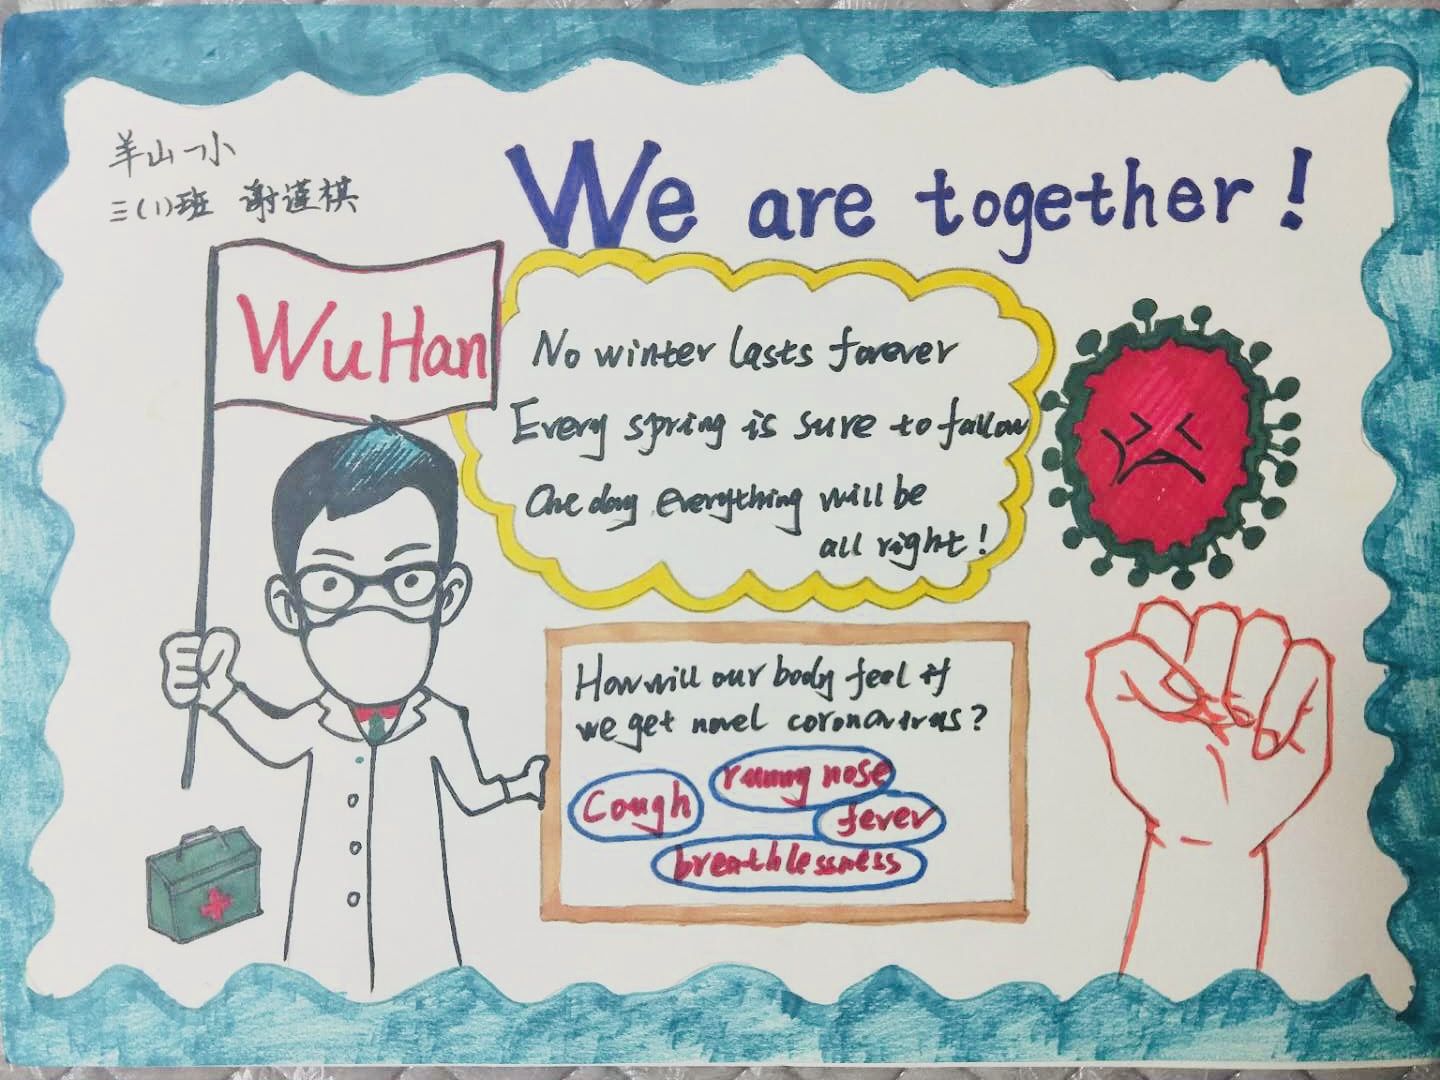 羊山一小
三(1)班 谢莲祺
We are together!
WuHan
No winter lasts forever
Every spring is sure to follow
One day everything will be
all right!
How will our body feel if
we get novel coronavirus?
Cough
runny nose
fever
breathlessness